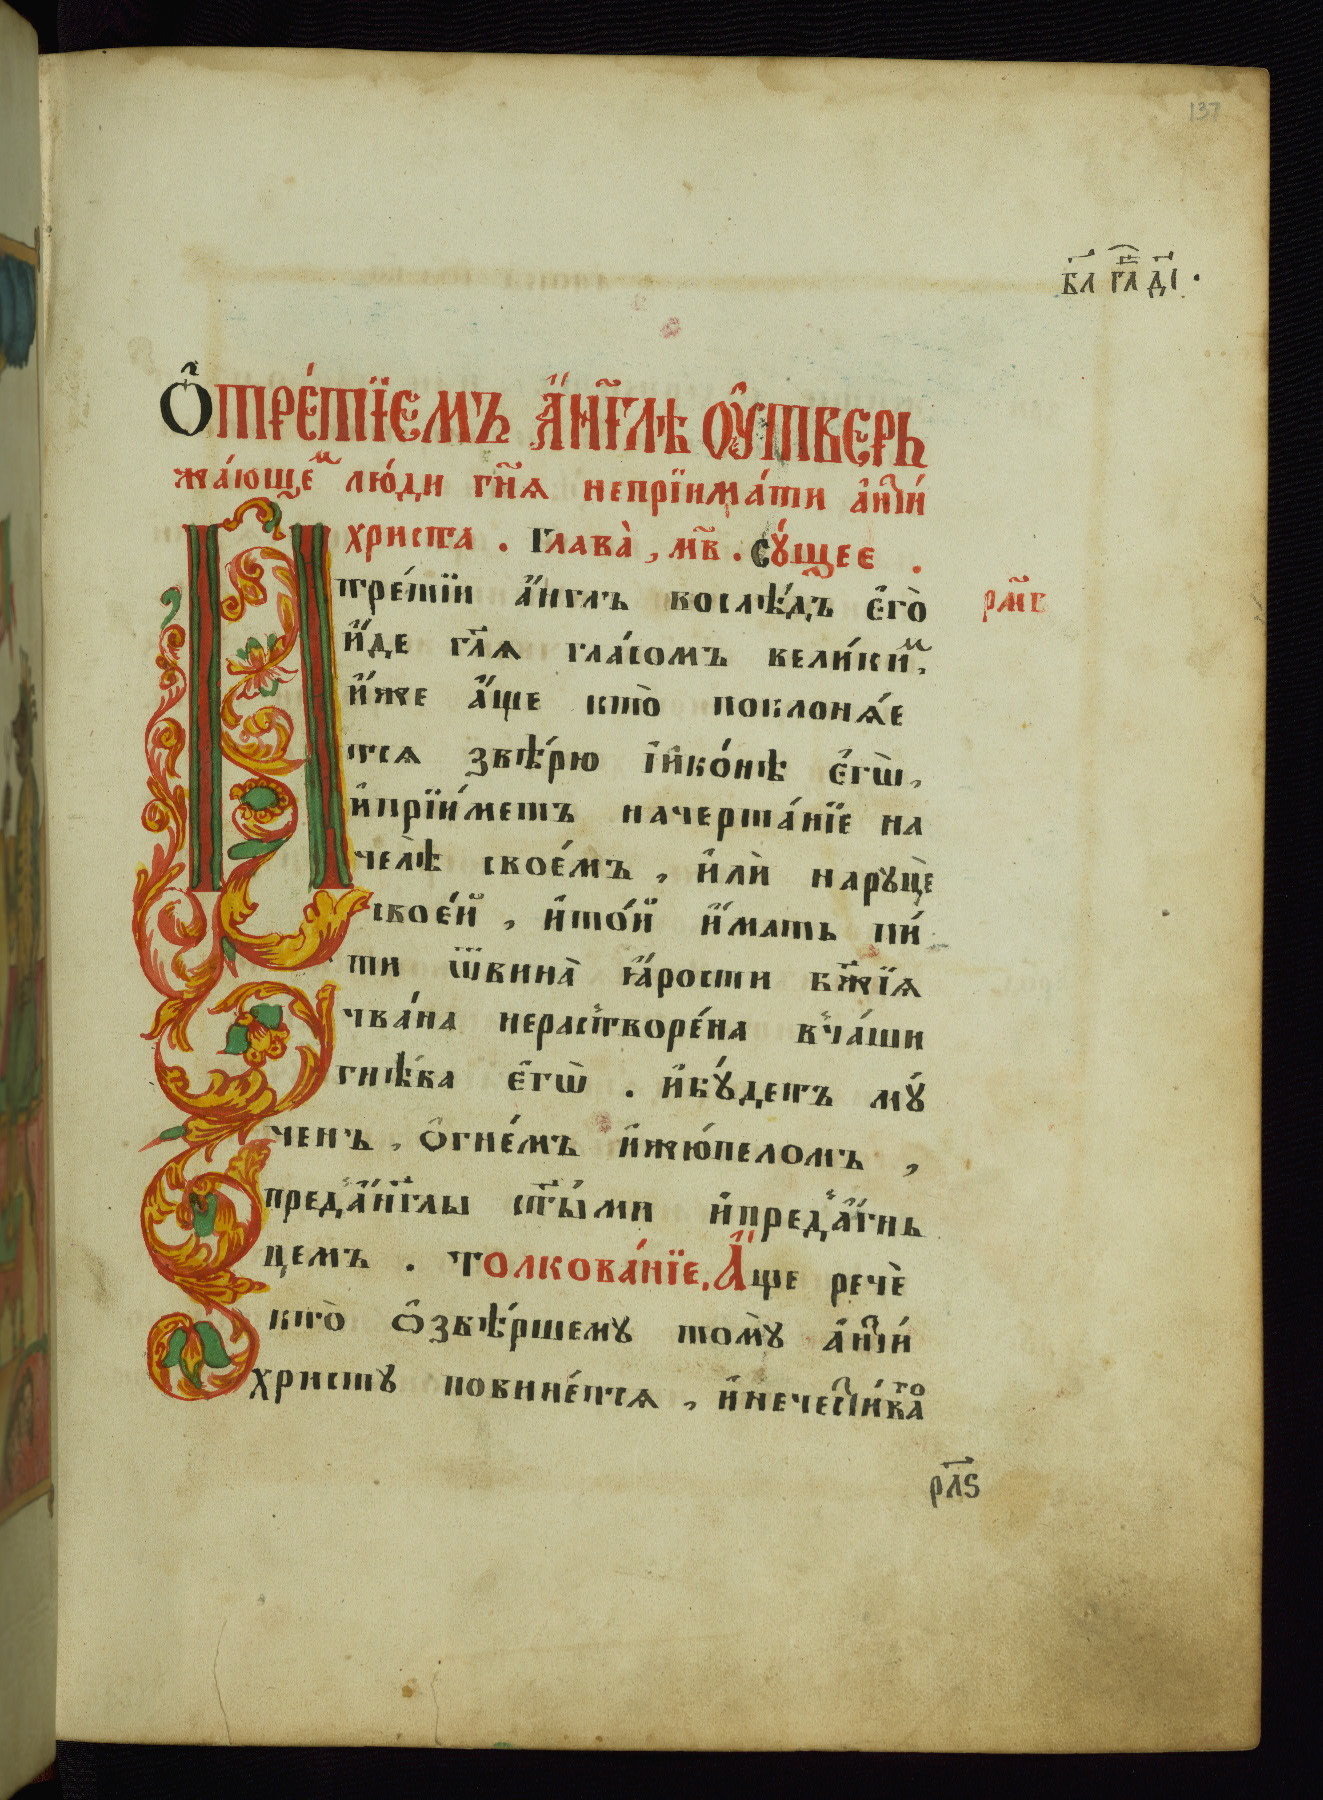 137
в҃л гл҃ ді҃ .
Ѻ҆ тре́тїемъ а҆́нг҃лѣ ѹ҆тверь
жа́юще люді гн҃ѧ непрїима́ти а҆нти́
христа . Глава̀ , мв҃ . сꙋ́щее .
рмв҃
тре́тїи а҆́нгл҃ъ вослѣ́дъ є҆го̀
и҆́де гл҃ѧ гла́сомъ вели́ки ⷨ,
и҆́же а҆́ще кто̀ поклонѧ́е
тсѧ звѣ́рю і҆и҆ко́нѣ є҆гѡ̀ ,
и҆прїи́метъ начерта́нїе на
челѣ̀ своемъ́ , и҆лѝ нарꙋцѐ
свое́й , и҆то́й и҆́мать пи́
ти ѿвина̀ ꙗ҆́рости бж҃їѧ
чва́на нераствоpе́на вча́ши
гнѣ́ва є҆гѡ̀ . и҆бꙋ́детъ мꙋ́
ченъ , ѻ҆гне́мъ и҆жю́пелом ъ ,
преда҆́нг҃лы ст҃ы́ми и҆преда҆́гнь
цемъ . Толкова́нїе . А҆́ще речѐ
кто̀ ѡ҆звѣ́ршемꙋ томꙋ̀ а҆нти́
христꙋ повине́тсѧ , и҆нечести́ваго
рл҃ѕ